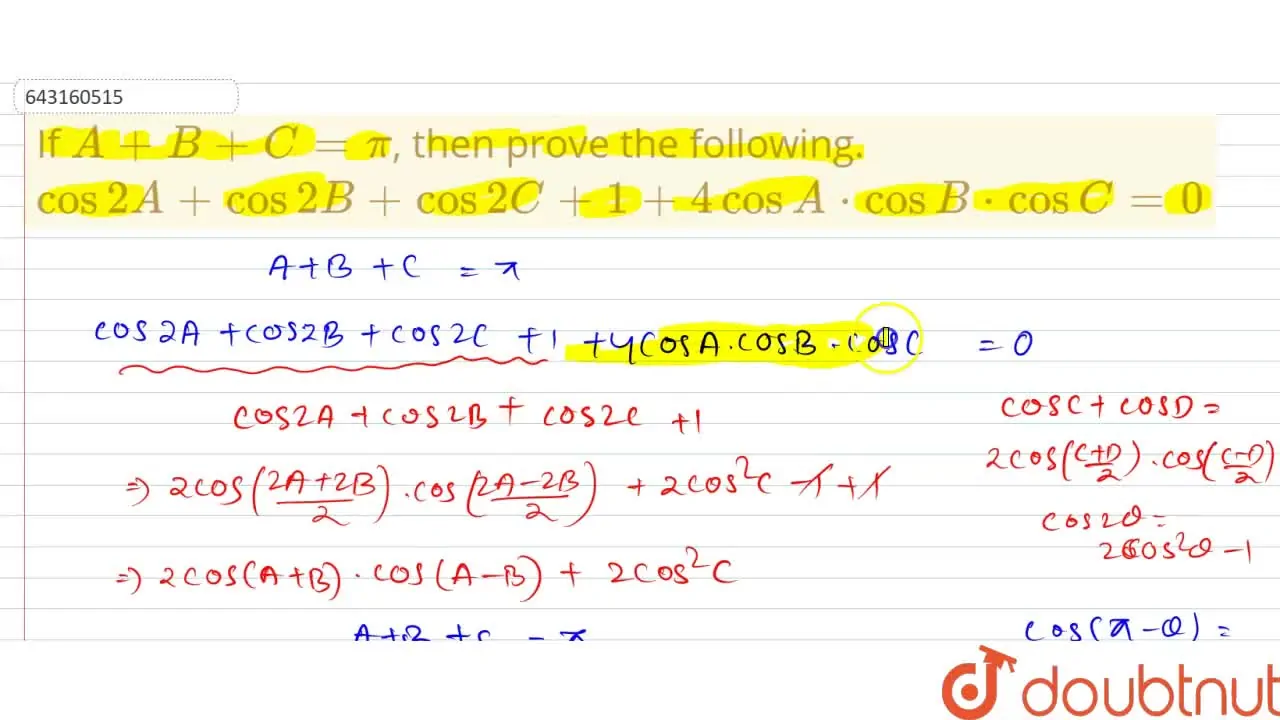 643160515
If A + B + C = π, then prove the following.
cos 2A + cos 2B + cos 2C + 1 + 4 cos A · cos B · cos C = 0
A+B +C = π
cos2A +cos2B +cos2C +1 +4cosA.cosB.cosC = 0
cos2A + cos2B + cos2C +1
cosC + cosD =
⇒ 2cos(2A+2B/2).cos(2A-2B/2) + 2cos²C -1 +1
2cos(C+D/2).cos(C-D/2)
cos2θ =
2cos²θ -1
⇒ 2cos(A+B).cos(A-B) + 2cos²C
A+B +C = π
cos(π-θ) =
doubtnut